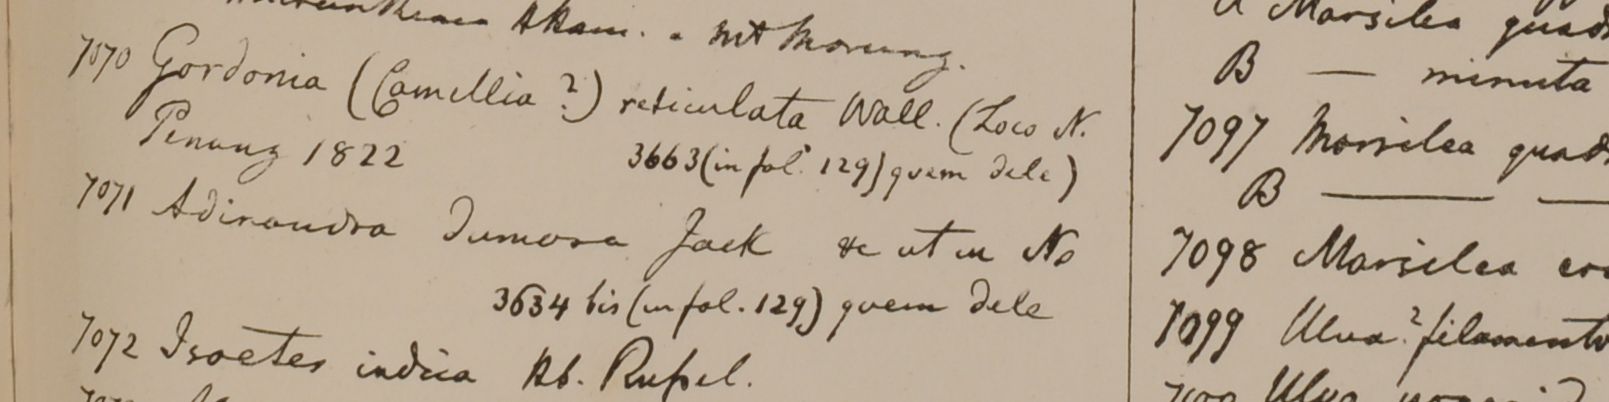 Akam. . Mt Morung.
7070 Gordonia (Camellia ?) reticulata Wall. (Loco N.
Penang 1822 3663 (in fol. 129) quem dele)
7071 Adinandra dumosa Jack &c ut in No
3634 bis (in fol. 129) quem dele
7072 Isoetes indica Hb. Rußel.
Marsilea quad
B — minuta
7097 Marsilea quad
B — —
7098 Marsilea
7099 Ulva? filamento